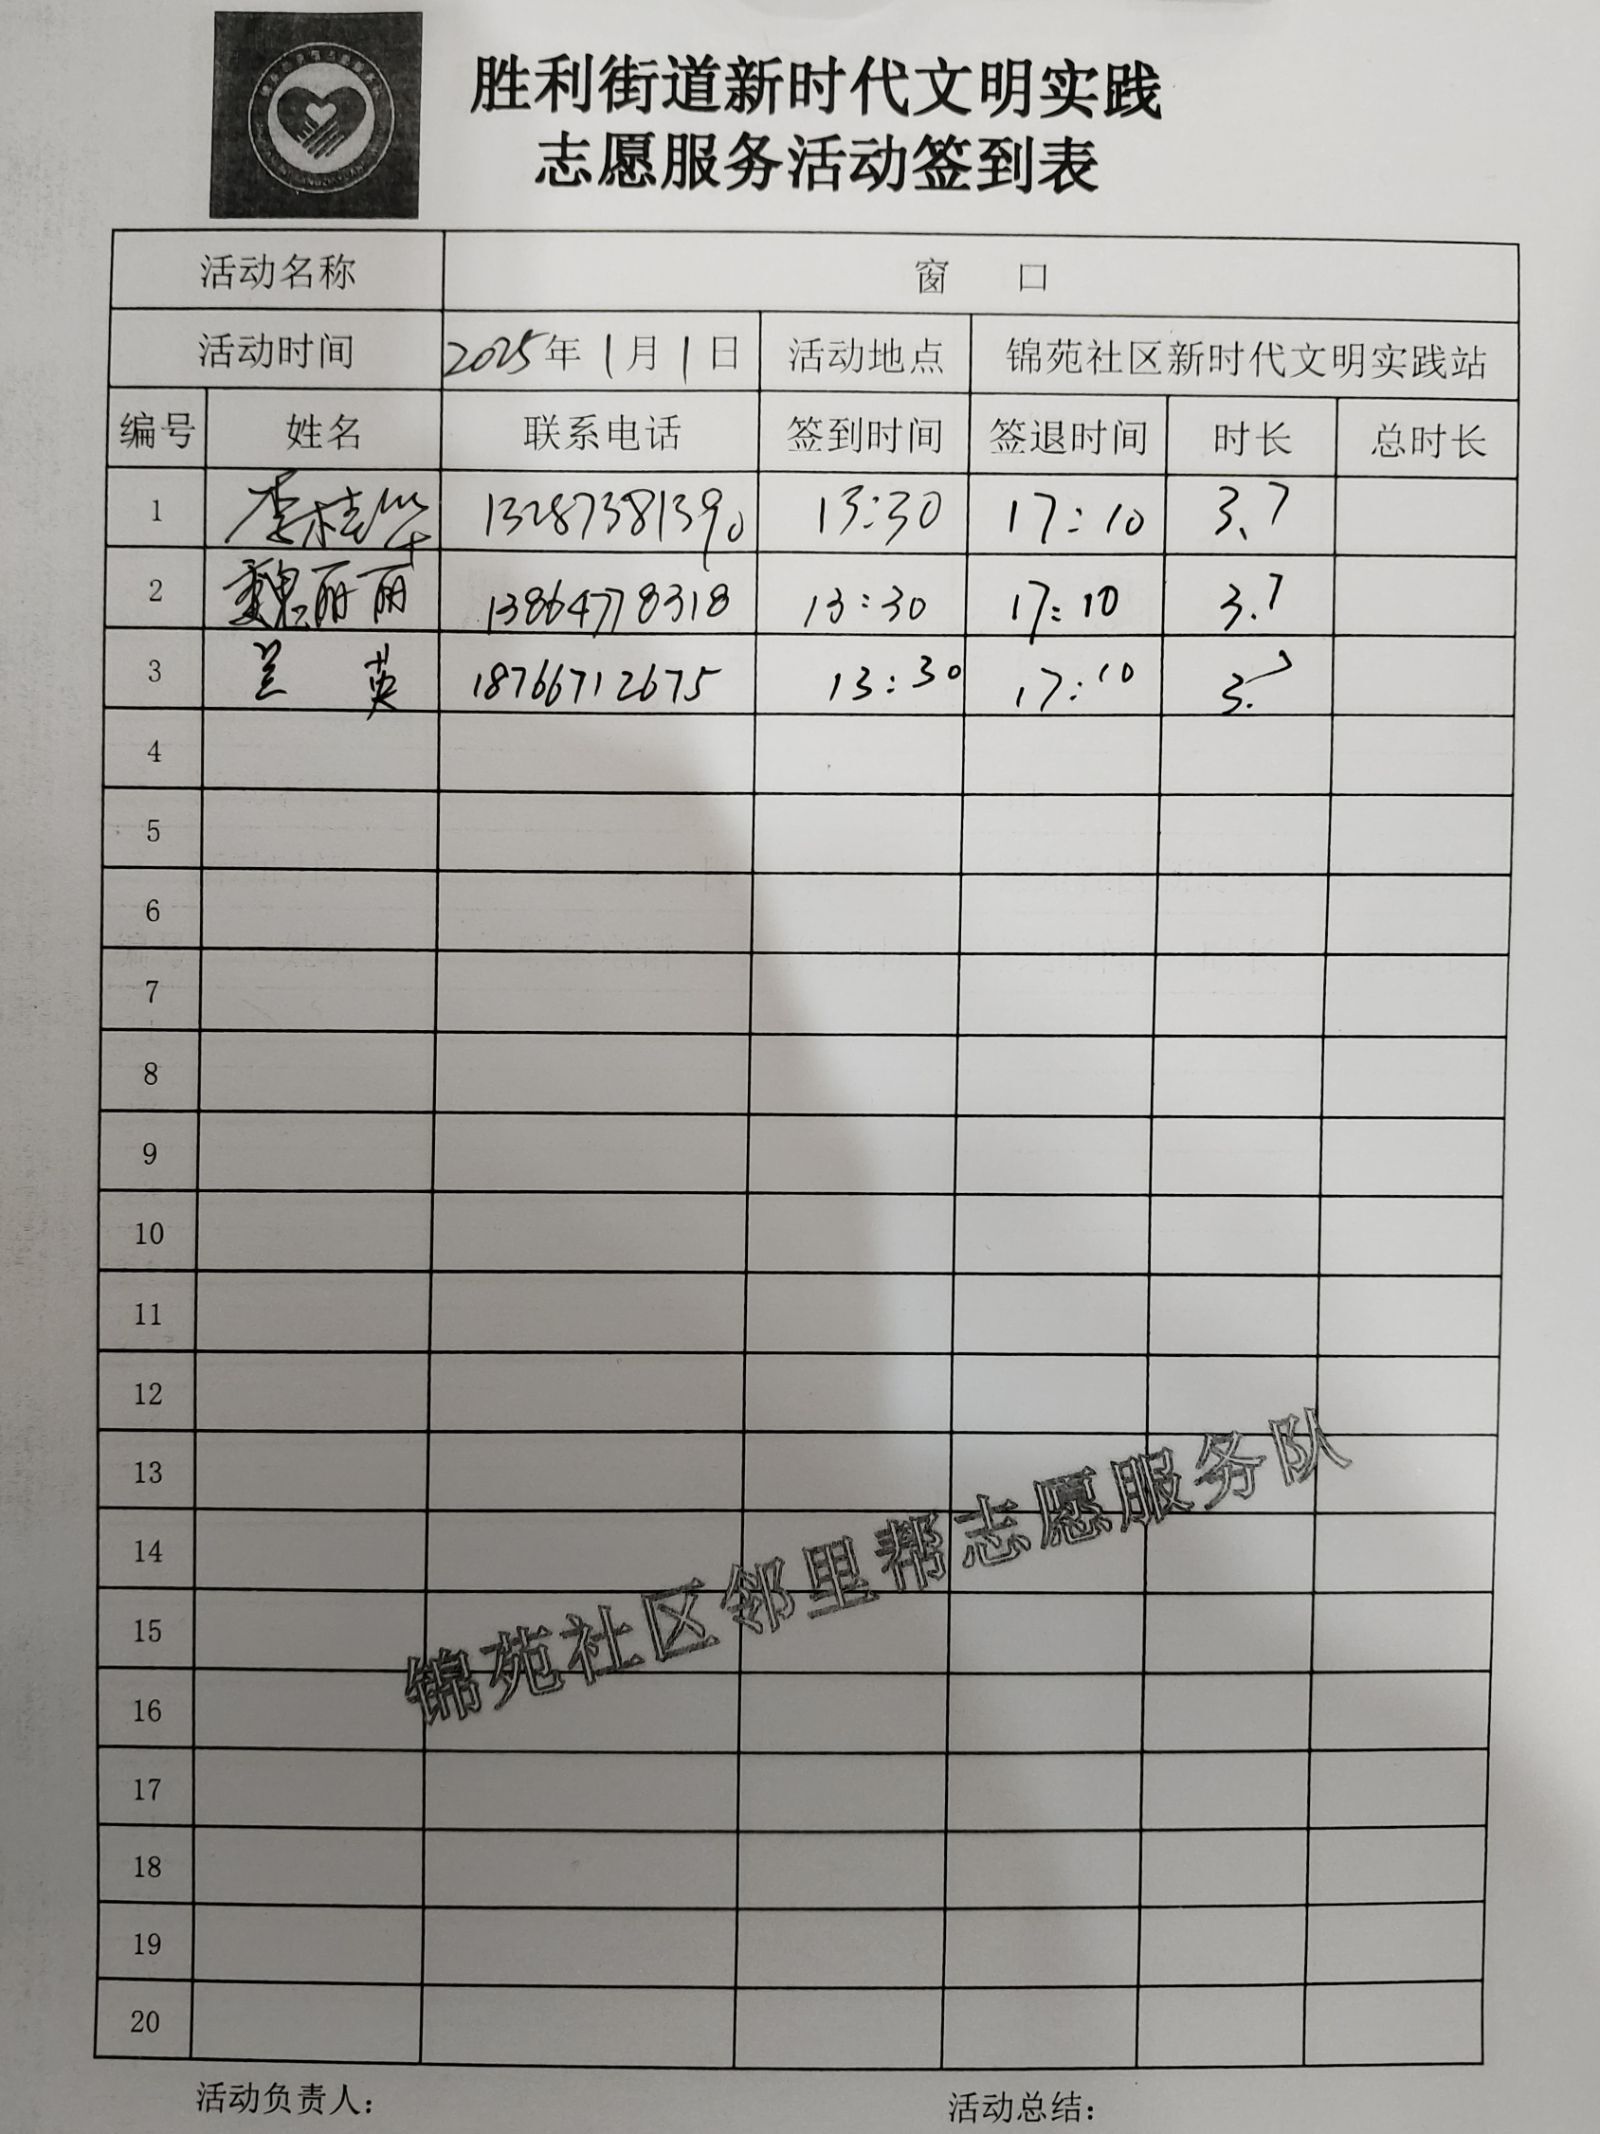 胜利街道新时代文明实践
志愿服务活动签到表
活动名称 窗 口
活动时间 2025年1月1日 活动地点 锦苑社区新时代文明实践站
编号 姓名 联系电话 签到时间 签退时间 时长 总时长
1 李桂华 13287381390 13:30 17:10 3.7
2 魏丽丽 13864778318 13:30 17:10 3.7
3 兰 英 18766712675 13:30 17:10 3.7
4
5
6
7
8
9
10
11
12
13
14
15
16
17
18
19
20
锦苑社区邻里帮志愿服务队
活动负责人: 活动总结: